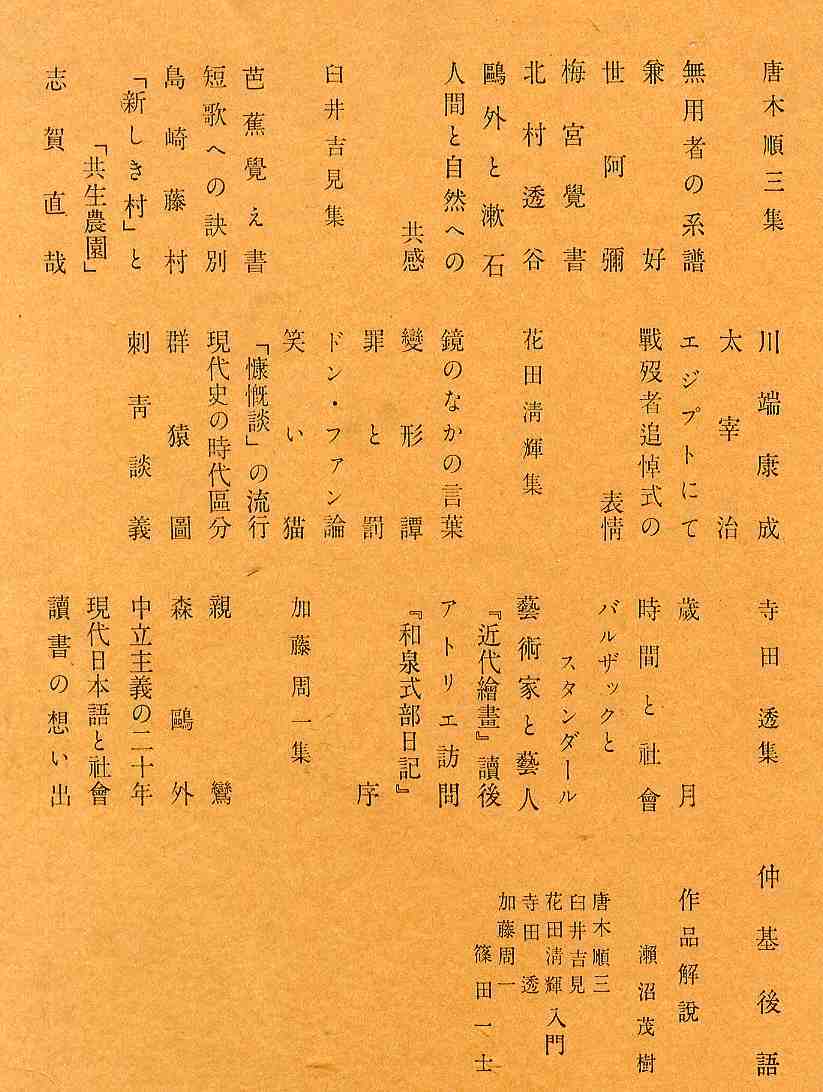 唐木順三集
無用者の系譜
兼好
世阿彌
梅宮覺書
北村透谷
鷗外と漱石
人間と自然への
共感
臼井吉見集
芭蕉覺え書
短歌への訣別
島崎藤村
「新しき村」と
「共生農園」
志賀直哉
川端康成
太宰治
エジプトにて
戰歿者追悼式の
表情
花田淸輝集
鏡のなかの言葉
變形譚
罪と罰
ドン・ファン論
笑い猫
「慷慨談」の流行
現代史の時代區分
群猿圖
刺靑談義
寺田透集
歲月
時間と社會
バルザックと
スタンダール
藝術家と藝人
『近代繪畫』讀後
アトリエ訪問
『和泉式部日記』
序
加藤周一集
親鸞
森鷗外
中立主義の二十年
現代日本語と社會
讀書の想い出
仲基後語
作品解說
瀨沼茂樹
唐木順三
臼井吉見
花田淸輝入門
寺田透
加藤周一
篠田一士